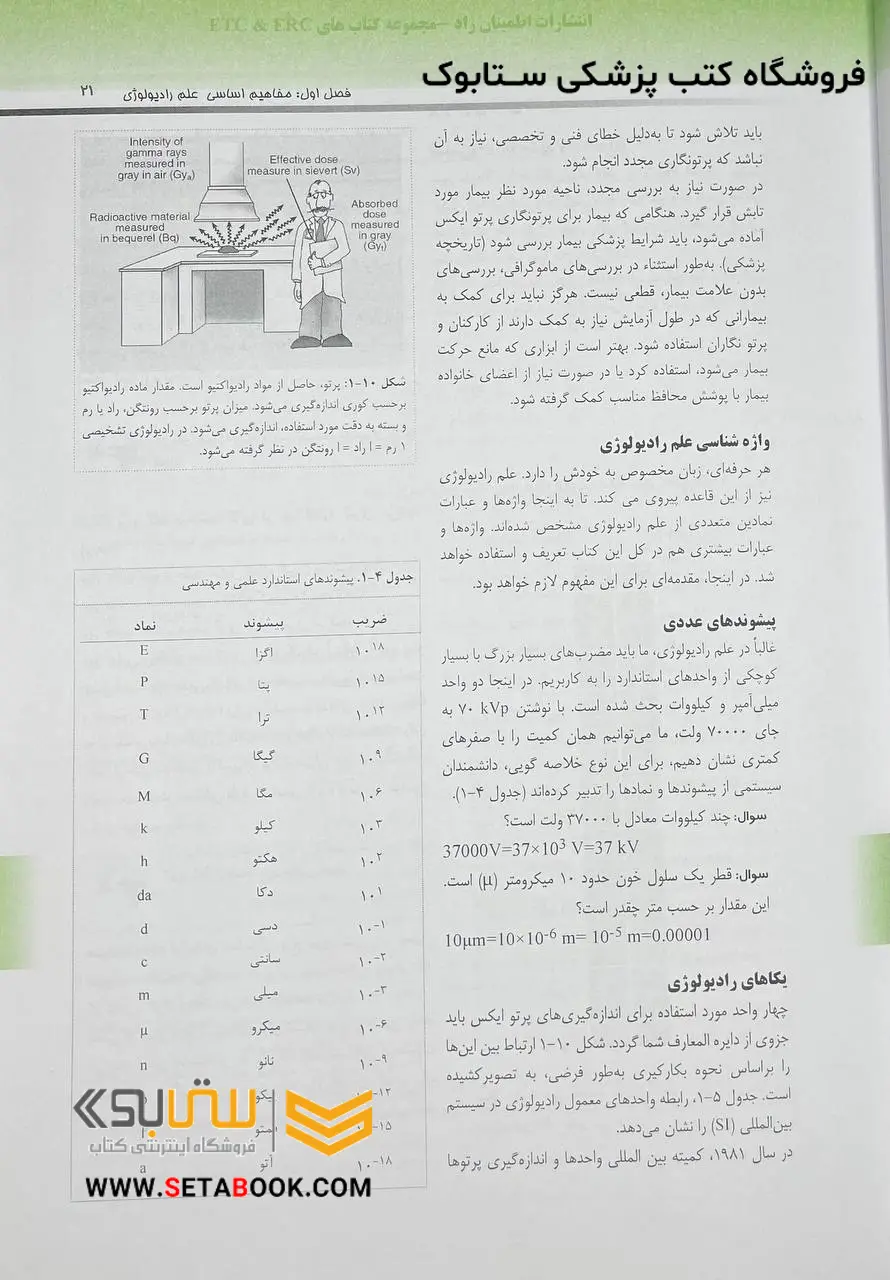 انتشارات اطمینان راد -مجموعه کتاب های ETC & ERC
فروشگاه کتب پزشکی ستابوک
فصل اول: مفاهیم اساسی علم رادیولوژی
۲۱
باید تلاش شود تا به‌دلیل خطای فنی و تخصصی، نیاز به آن
نباشد که پرتونگاری مجدد انجام شود.
در صورت نیاز به بررسی مجدد، ناحیه مورد نظر بیمار مورد
تابش قرار گیرد. هنگامی که بیمار برای پرتونگاری پرتو ایکس
آماده می‌شود، باید شرایط پزشکی بیمار بررسی شود (تاریخچه
پزشکی). به‌طور استثناء در بررسی‌های ماموگرافی، بررسی‌های
بدون علامت بیمار، قطعی نیست. هرگز نباید برای کمک به
بیمارانی که در طول آزمایش نیاز به کمک دارند از کارکنان و
پرتو نگاران استفاده شود. بهتر است از ابزاری که مانع حرکت
بیمار می‌شود، استفاده کرد یا در صورت نیاز از اعضای خانواده
بیمار با پوشش محافظ مناسب کمک گرفته شود.
واژه شناسی علم رادیولوژی
هر حرفه‌ای، زبان مخصوص به خودش را دارد. علم رادیولوژی
نیز از این قاعده پیروی می کند. تا به اینجا واژه‌ها و عبارات
نمادین متعددی از علم رادیولوژی مشخص شده‌اند. واژه‌ها و
عبارات بیشتری هم در کل این کتاب تعریف و استفاده خواهد
شد. در اینجا، مقدمه‌ای برای این مفهوم لازم خواهد بود.
پیشوندهای عددی
غالباً در علم رادیولوژی، ما باید مضرب‌های بسیار بزرگ یا بسیار
کوچکی از واحدهای استاندارد را به کاربریم. در اینجا دو واحد
میلی‌آمپر و کیلووات بحث شده است. با نوشتن ۷۰ kVp به
جای ۷۰۰۰۰ ولت، ما می‌توانیم همان کمیت را با صفرهای
کمتری نشان دهیم، برای این نوع خلاصه گویی، دانشمندان
سیستمی از پیشوندها و نمادها را تدبیر کرده‌اند (جدول ۴-۱).
سوال: چند کیلووات معادل با ۳۷۰۰۰ ولت است؟
37000V=37×10³ V=37 kV
سوال: قطر یک سلول خون حدود ۱۰ میکرومتر (μ) است.
این مقدار بر حسب متر چقدر است؟
10μm=10×10⁻⁶ m= 10⁻⁵ m=0.00001
یکاهای رادیولوژی
چهار واحد مورد استفاده برای اندازه‌گیری‌های پرتو ایکس باید
جزوی از دایره المعارف شما گردد. شکل ۱۰-۱ ارتباط بین این‌ها
را براساس نحوه بکارگیری به‌طور فرضی، به تصویرکشیده
است. جدول ۵-۱، رابطه واحدهای معمول رادیولوژی در سیستم
بین‌المللی (SI) را نشان می‌دهد.
در سال ۱۹۸۱، کمیته بین المللی واحدها و اندازه‌گیری پرتوها
Intensity of
gamma rays
measured in
gray in air (Gyₐ)
Effective dose
measure in sievert (Sv)
Radioactive material
measured
in bequerel (Bq)
Absorbed
dose
measured
in gray
(Gyₜ)
شکل ۱۰-۱: پرتو، حاصل از مواد رادیواکتیو است. مقدار ماده رادیواکتیو
برحسب کوری اندازه‌گیری می‌شود. میزان پرتو برحسب رونتگن، راد یا رم
و بسته به دقت مورد استفاده، اندازه‌گیری می‌شود. در رادیولوژی تشخیصی
۱ رم = ۱ راد = ۱ رونتگن در نظر گرفته می‌شود.
جدول ۴-۱. پیشوندهای استاندارد علمی و مهندسی
ضریب پیشوند نماد
۱۰¹⁸ اگزا E
۱۰¹⁵ پتا P
۱۰¹² ترا T
۱۰⁹ گیگا G
۱۰⁶ مگا M
۱۰³ کیلو k
۱۰² هکتو h
۱۰¹ دکا da
۱۰⁻¹ دسی d
۱۰⁻² سانتی c
۱۰⁻³ میلی m
۱۰⁻⁶ میکرو μ
۱۰⁻⁹ نانو n
۱۰⁻¹⁸ آتو a
ستابوک
فروشگاه اینترنتی کتاب
WWW.SETABOOK.COM